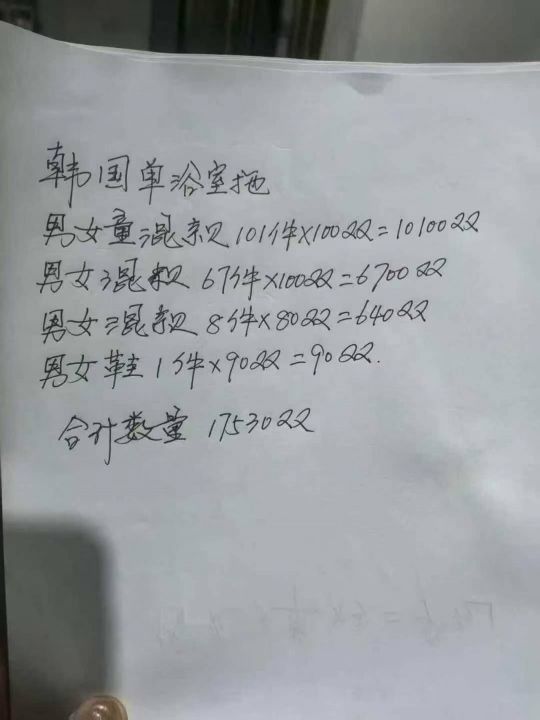 韩国单浴室拖
男女童混款 101件×100双=10100双
男女混款 67件×100双=6700双
男女混款 8件×80双=640双
男女鞋 1件×90双=90双.
合计数量 17530双